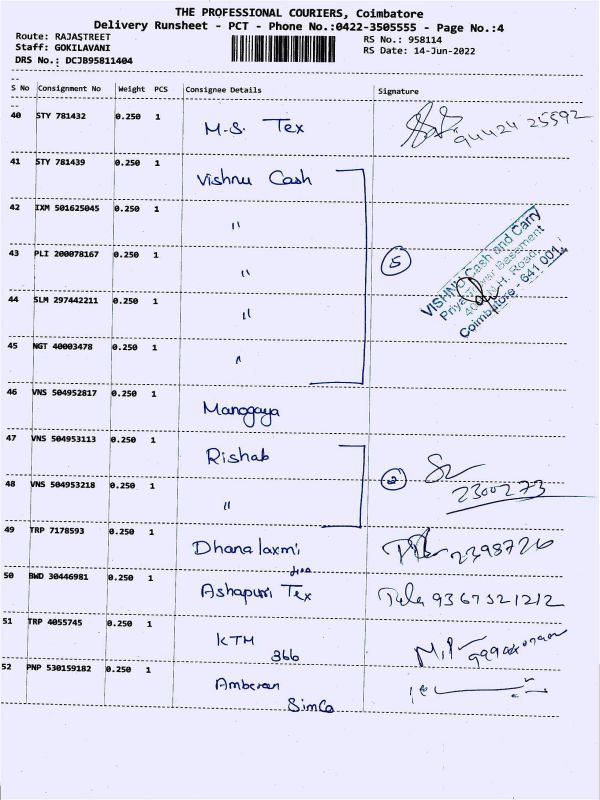 THE PROFESSIONAL COURIERS, Coimbatore
Delivery Runsheet - PCT - Phone No.:0422-3505555 - Page No.:4
Route: RAJASTREET
RS No.: 958114
Staff: GOKILAVANI
RS Date: 14-Jun-2022
DRS No.: DCJB95811404
S No Consignment No Weight PCS Consignee Details Signature
40 STY 781432 0.250 1 M.S. Tex 94424 25592
41 STY 781439 0.250 1 Vishnu Cash
42 IXM 501625045 0.250 1 "
43 PLI 200078167 0.250 1 " 5
44 SLM 297442211 0.250 1 "
45 NGT 40003478 0.250 1 "
VISHNU Cash and Carry
Priya Tower Basement
H. Road,
Coimbatore - 641 001.
46 VNS 504952817 0.250 1 Manogaya
47 VNS 504953113 0.250 1 Rishab
48 VNS 504953218 0.250 1 " 2 2300273
49 TRP 7178593 0.250 1 Dhanalaxmi 2398726
50 BWD 30446981 0.250 1 Ashapuri Tex 93673 21212
51 TRP 4055745 0.250 1 KTM
366
52 PNP 530159182 0.250 1
SimCo